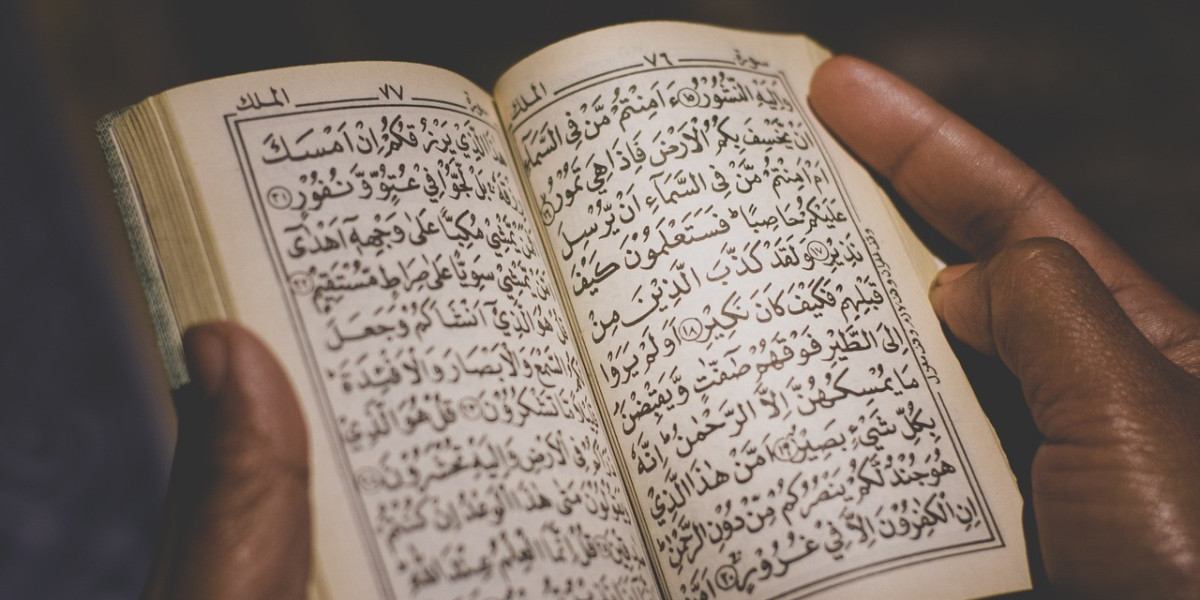 سورة ٧٦ الملك
وَاِلَيْهِ النُّشُوْرُ ۝١٥ ءَ اَمِنْتُمْ مَّنْ فِي السَّمَآءِ
اَنْ يَّخْسِفَ بِكُمُ الْاَرْضَ فَاِذَا هِيَ تَمُوْرُ ۝١٦
اَمْ اَمِنْتُمْ مَّنْ فِي السَّمَآءِ اَنْ يُّرْسِلَ
عَلَيْكُمْ حَاصِبًا ؕ فَسَتَعْلَمُوْنَ كَيْفَ
نَذِيْرِ ۝١٧ وَلَقَدْ كَذَّبَ الَّذِيْنَ مِنْ
قَبْلِهِمْ فَكَيْفَ كَانَ نَكِيْرِ ۝١٨ اَوَلَمْ يَرَوْا
اِلَى الطَّيْرِ فَوْقَهُمْ صٰٓفّٰتٍ وَّيَقْبِضْنَ
مَا يُمْسِكُهُنَّ اِلَّا الرَّحْمٰنُ ؕ اِنَّهٗ
بِكُلِّ شَيْءٍ بَصِيْرٌ ۝١٩ اَمَّنْ هٰذَا الَّذِيْ
هُوَ جُنْدٌ لَّكُمْ يَنْصُرُكُمْ مِّنْ دُوْنِ الرَّحْمٰنِ ؕ
اِنِ الْكٰفِرُوْنَ اِلَّا فِيْ غُرُوْرٍ ۝٢٠ اَمَّنْ
سورة ٧٧ الملك
هٰذَا الَّذِيْ يَرْزُقُكُمْ اِنْ اَمْسَكَ
رِزْقَهٗ بَلْ لَّجُّوْا فِيْ عُتُوٍّ وَّنُفُوْرٍ ۝٢١
اَفَمَنْ يَّمْشِيْ مُكِبًّا عَلٰى وَجْهِهٖٓ اَهْدٰٓى
اَمَّنْ يَّمْشِيْ سَوِيًّا عَلٰى صِرَاطٍ مُّسْتَقِيْمٍ ۝٢٢
قُلْ هُوَ الَّذِيْٓ اَنْشَاَكُمْ وَجَعَلَ
لَكُمُ السَّمْعَ وَالْاَبْصَارَ وَالْاَفْـِٕدَةَ ؕ
قَلِيْلًا مَّا تَشْكُرُوْنَ ۝٢٣ قُلْ هُوَ الَّذِيْ
ذَرَاَكُمْ فِي الْاَرْضِ وَاِلَيْهِ تُحْشَرُوْنَ ۝٢٤
وَيَقُوْلُوْنَ مَتٰى هٰذَا الْوَعْدُ اِنْ كُنْتُمْ
صٰدِقِيْنَ ۝٢٥ قُلْ اِنَّمَا الْعِلْمُ عِنْدَ اللّٰهِ